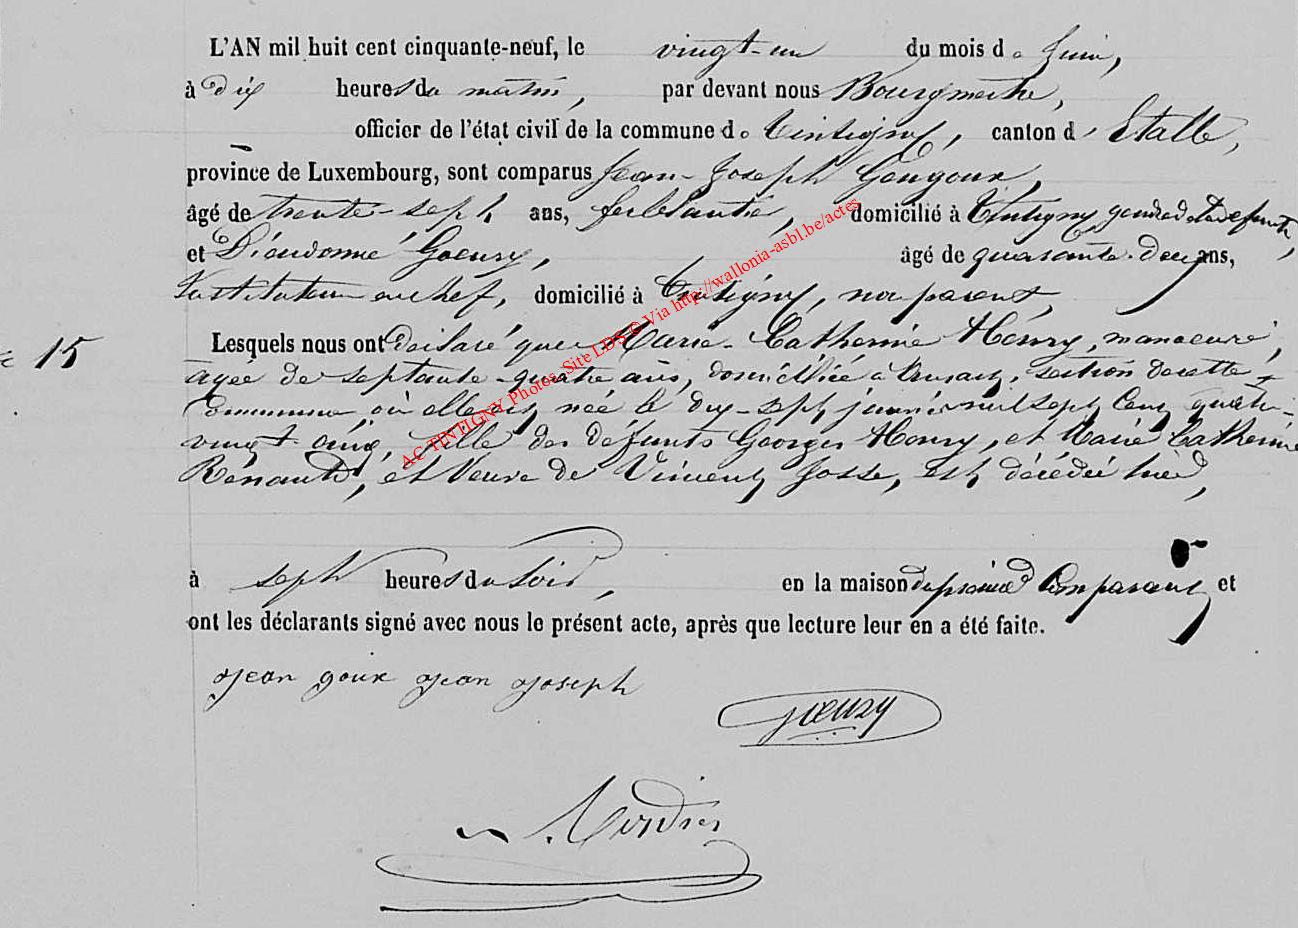 L'AN mil huit cent cinquante-neuf, le vingt-un du mois de Juin,
à dix heures du matin, par devant nous Bourgmestre,
officier de l'état civil de la commune de Tintigny, canton d'Etalle,
province de Luxembourg, sont comparus Jean-Joseph Gougoux,
âgé de trente-sept ans, ferblantié, domicilié à Tintigny gendre de la défunte,
et Dieudonné Goeury, âgé de quarante-deux ans,
Instituteur en chef, domicilié à Tintigny, non parent,
15
Lesquels nous ont déclaré que Marie-Catherine Henry, manoeuvre,
agée de septante-quatre ans, domiciliée à Ansart, section de cette
Commune où elle est née le dix-sept janvier mil sept cent quatre-
vingt cinq, fille des défunts Georges Henry, et Marie Catherine
Renauld, et Veuve de Vincent Josse, est décédée hier,
à sept heures du soir, en la maison du premier Comparant et
ont les déclarants signé avec nous le présent acte, après que lecture leur en a été faite.
Jean goux Jean Joseph
Goeury
AC TINTIGNY Photos, Site LDS © Via http://wallonia-asbl.be/actes